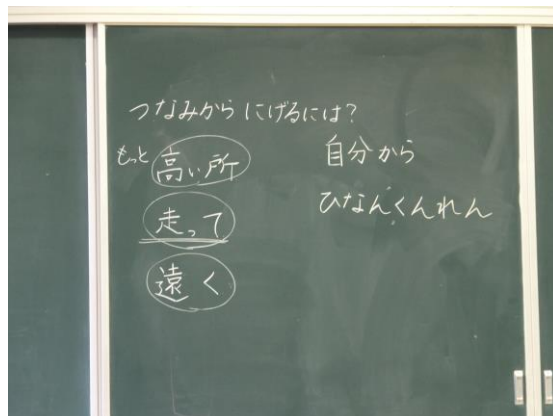 つなみからにげるには?
もっと高い所
走って
遠く
自分から
ひなんくんれん